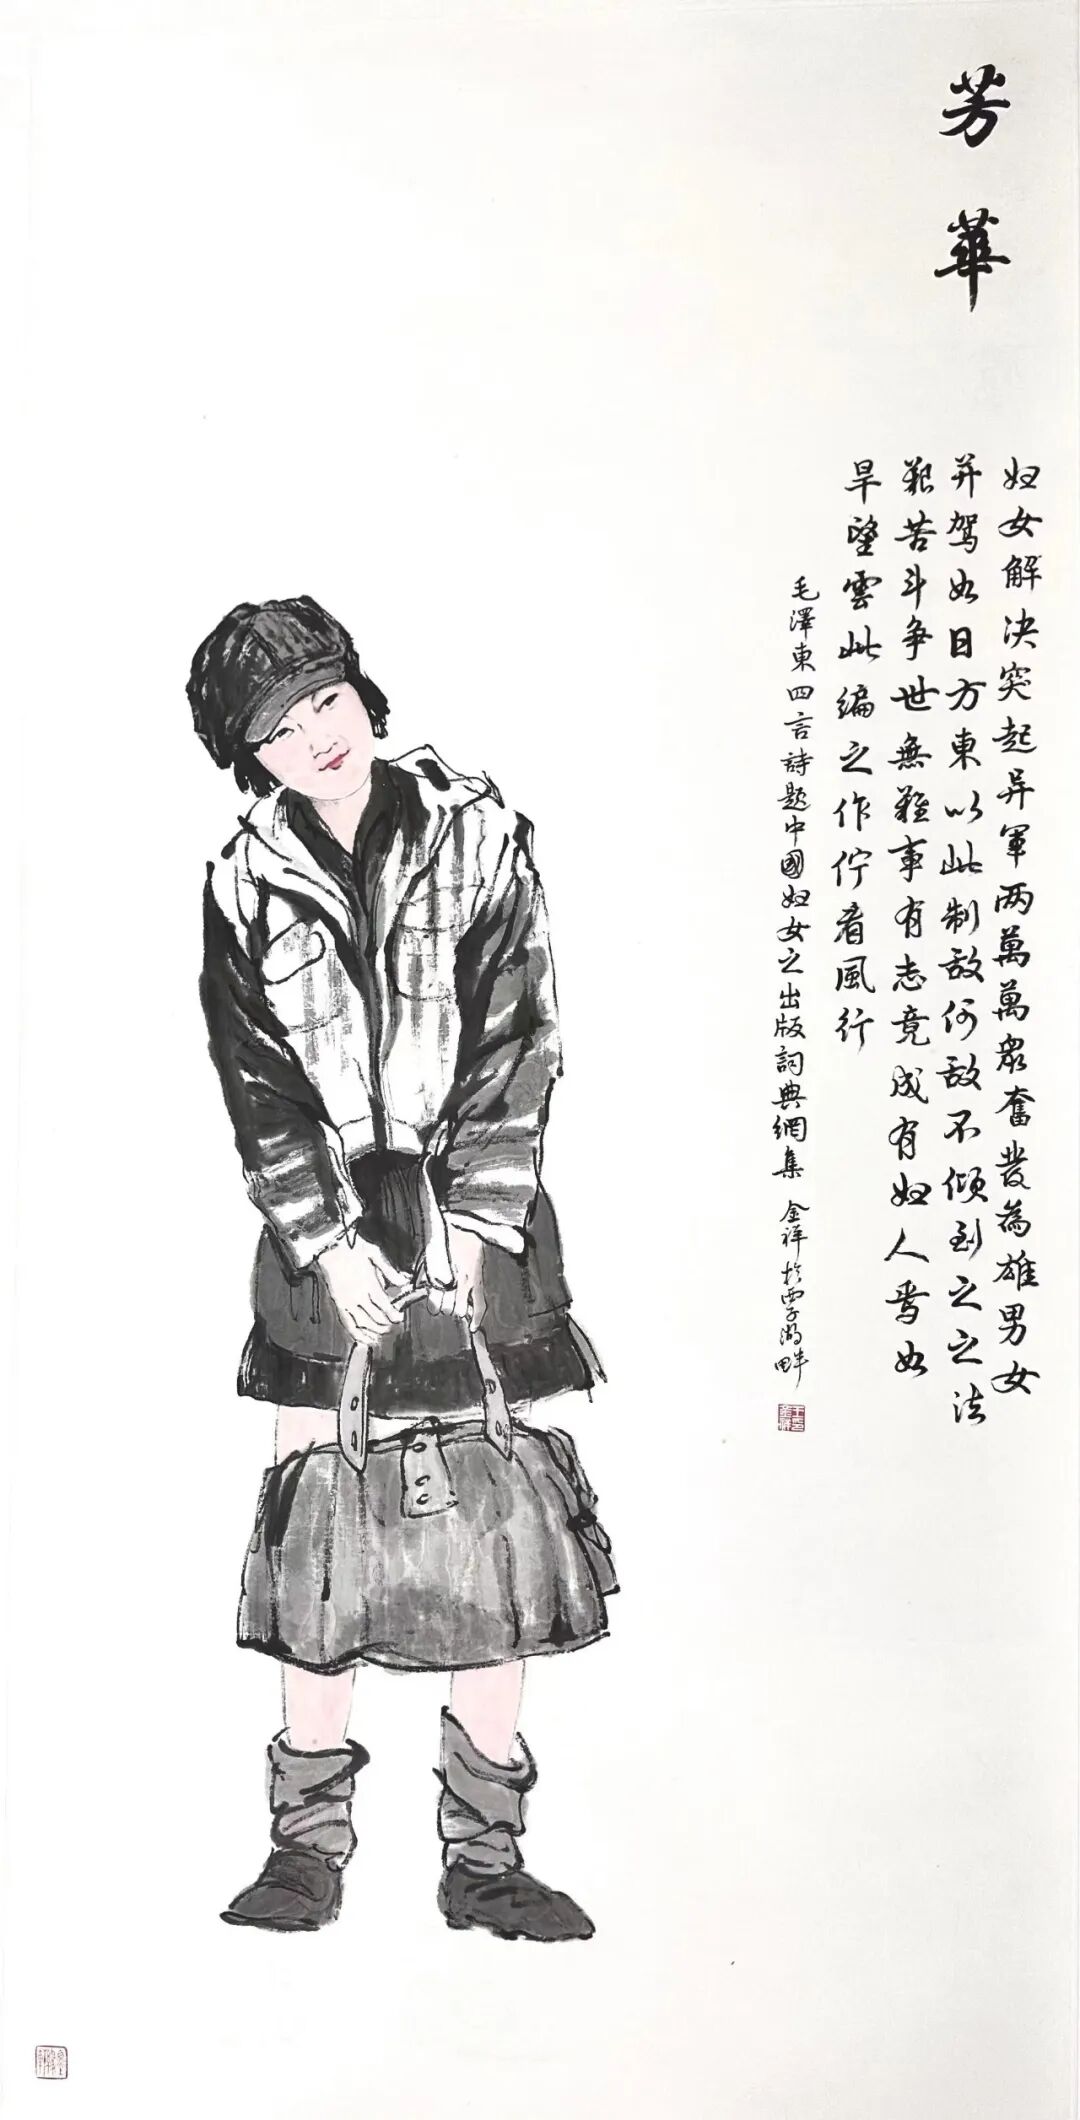 芳華
妇女解决突起异軍两萬萬眾奮發為雄男女
并驾如日方東以此制敌何敌不倾到之之法
艱苦斗争世無難事有志竟成有妇人焉如
旱望雲此编之作佇看風行
毛澤東四言詩题中國妇女之出版詞典網集 金祥於西子湖畔